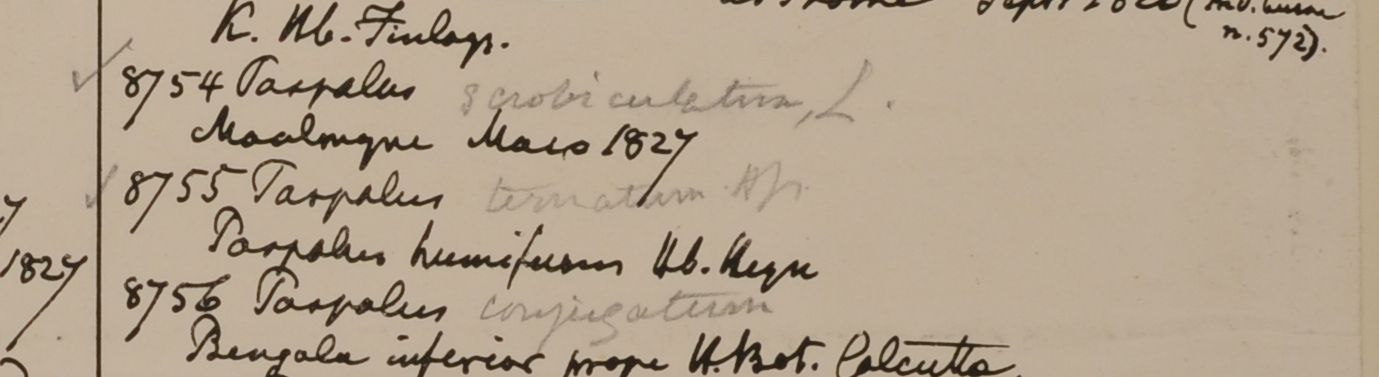 Sept 1826 (
n. 572).
K. Hb. Finlays.
8754 Paspalus scrobiculatum, L.
Moalmyne Mars 1827
8755 Paspalus ternatum Hf.
7
Paspalus humifusus Hb. Heyne
1827
8756 Paspalus conjugatum
Bengala inferior prope H. Bot. Calcutta